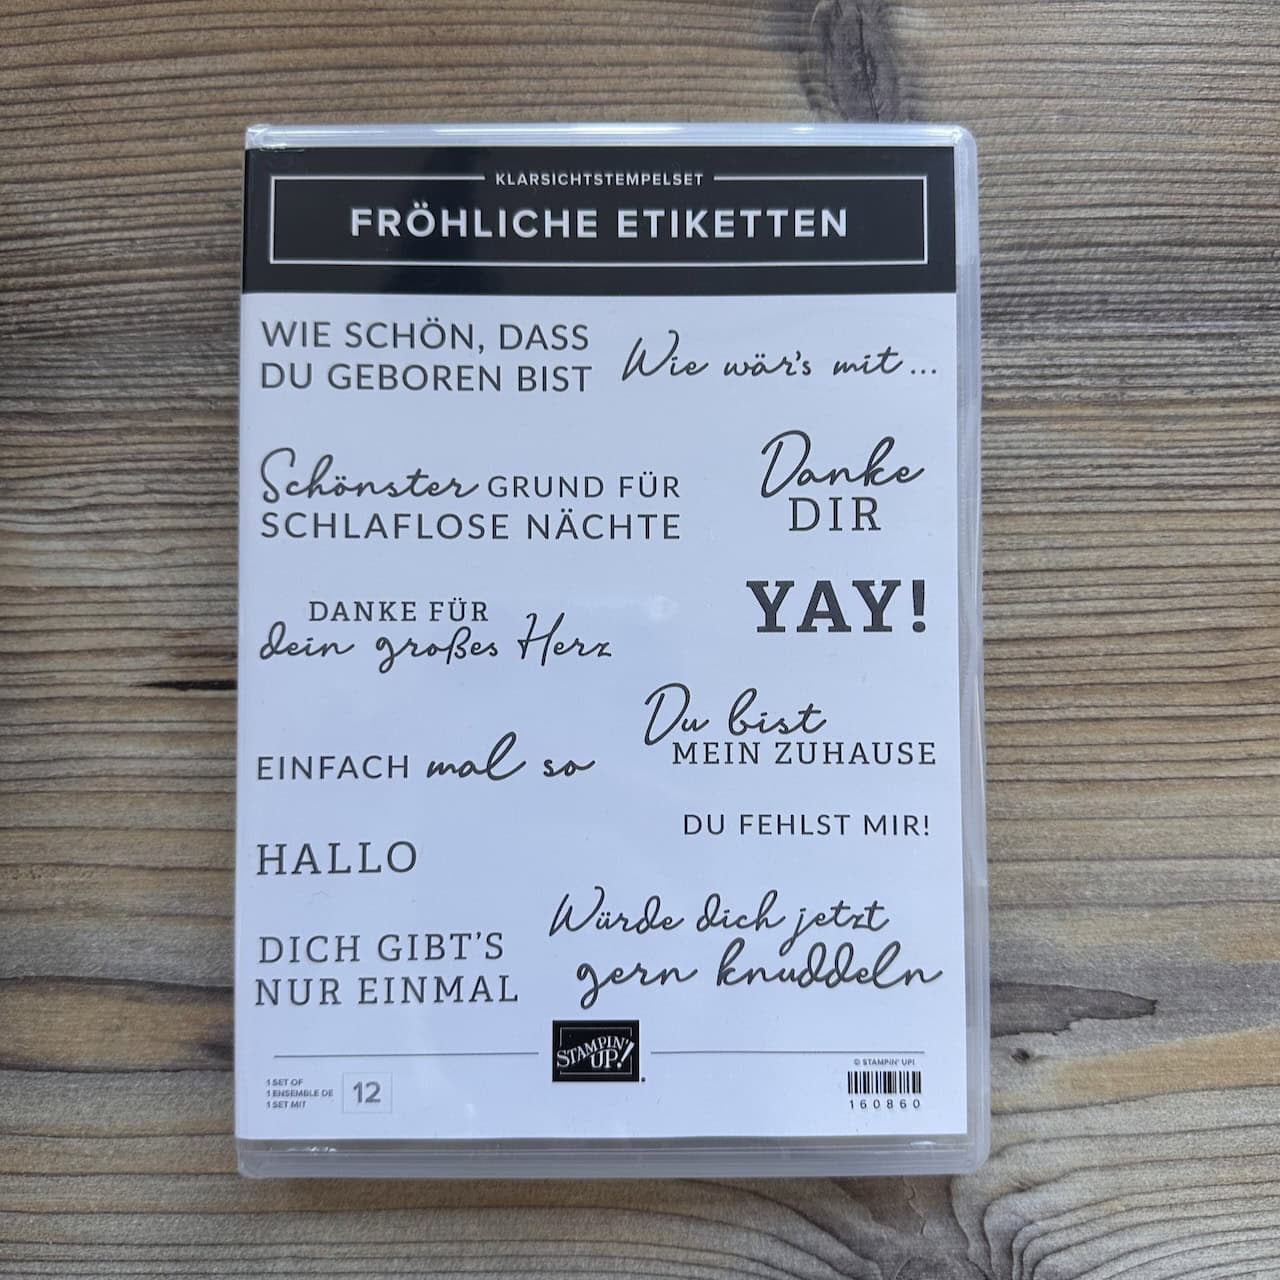 KLARSICHTSTEMPELSET
FRÖHLICHE ETIKETTEN
WIE SCHÖN, DASS
DU GEBOREN BIST
Wie wär's mit...
Schönster GRUND FÜR
SCHLAFLOSE NÄCHTE
Danke
DIR
DANKE FÜR
dein großes Herz
YAY!
Du bist
MEIN ZUHAUSE
EINFACH mal so
DU FEHLST MIR!
HALLO
Würde dich jetzt
gern knuddeln
DICH GIBT'S
NUR EINMAL
STAMPIN'
UP!
1 SET OF
1 ENSEMBLE DE
1 SET MIT
12
© STAMPIN' UP!
160860